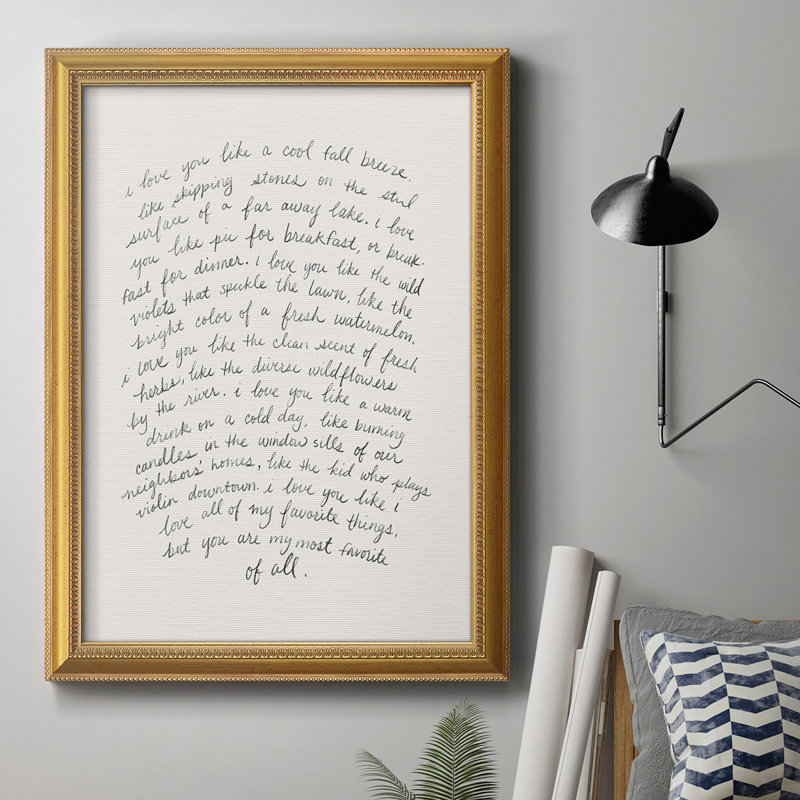 i love you like a cool fall breeze.
like skipping stones on the still
surface of a far away lake. i love
you like pie for breakfast, or break.
fast for dinner. i love you like the wild
violets that speckle the lawn, like the
bright color of a fresh watermelon.
i love you like the clean scent of fresh
herbs, like the diverse wildflowers
by the river. i love you like a warm
drink on a cold day, like burning
candles in the window sills of our
neighbors' homes, like the kid who plays
violin downtown. i love you like i
love all of my favorite things,
but you are my most favorite
of all.